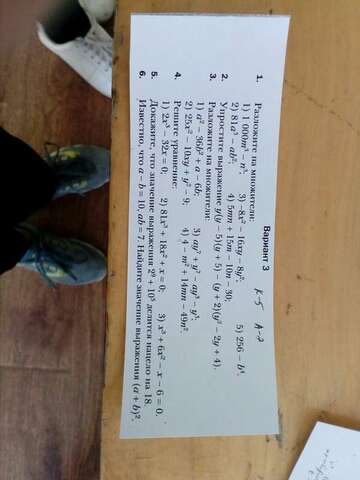 К-5 А-7
Вариант 3
1. Разложите на множители:
1) 1 000m³ – n³; 3) –8x² – 16xy – 8y²; 5) 256 – b⁴.
2) 81a³ – ab²; 4) 5mn + 15m – 10n – 30;
2. Упростите выражение y(y – 5)(y + 5) – (y + 2)(y² – 2y + 4).
3. Разложите на множители:
1) a² – 36b² + a – 6b; 3) ay⁷ + y⁷ – ay³ – y³;
2) 25x² – 10xy + y² – 9; 4) 4 – m² + 14mn – 49n².
4. Решите уравнение:
1) 2x³ – 32x = 0; 2) 81x³ + 18x² + x = 0; 3) x³ + 6x² – x – 6 = 0.
5. Докажите, что значение выражения 2⁹ + 10³ делится нацело на 18.
6. Известно, что a – b = 10, ab = 7. Найдите значение выражения (a + b)².